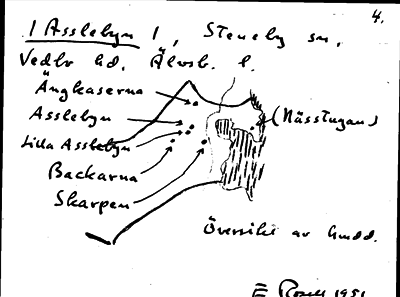 4.
1 Asslebyn 1, Steneby sn.
Vedbo hd. Älvsb. l.
Ängkaserna
Asslebyn
(Nässtugan)
Lilla Asslebyn
Backarna
Skarpen
Översikt av
E Rosell 1951